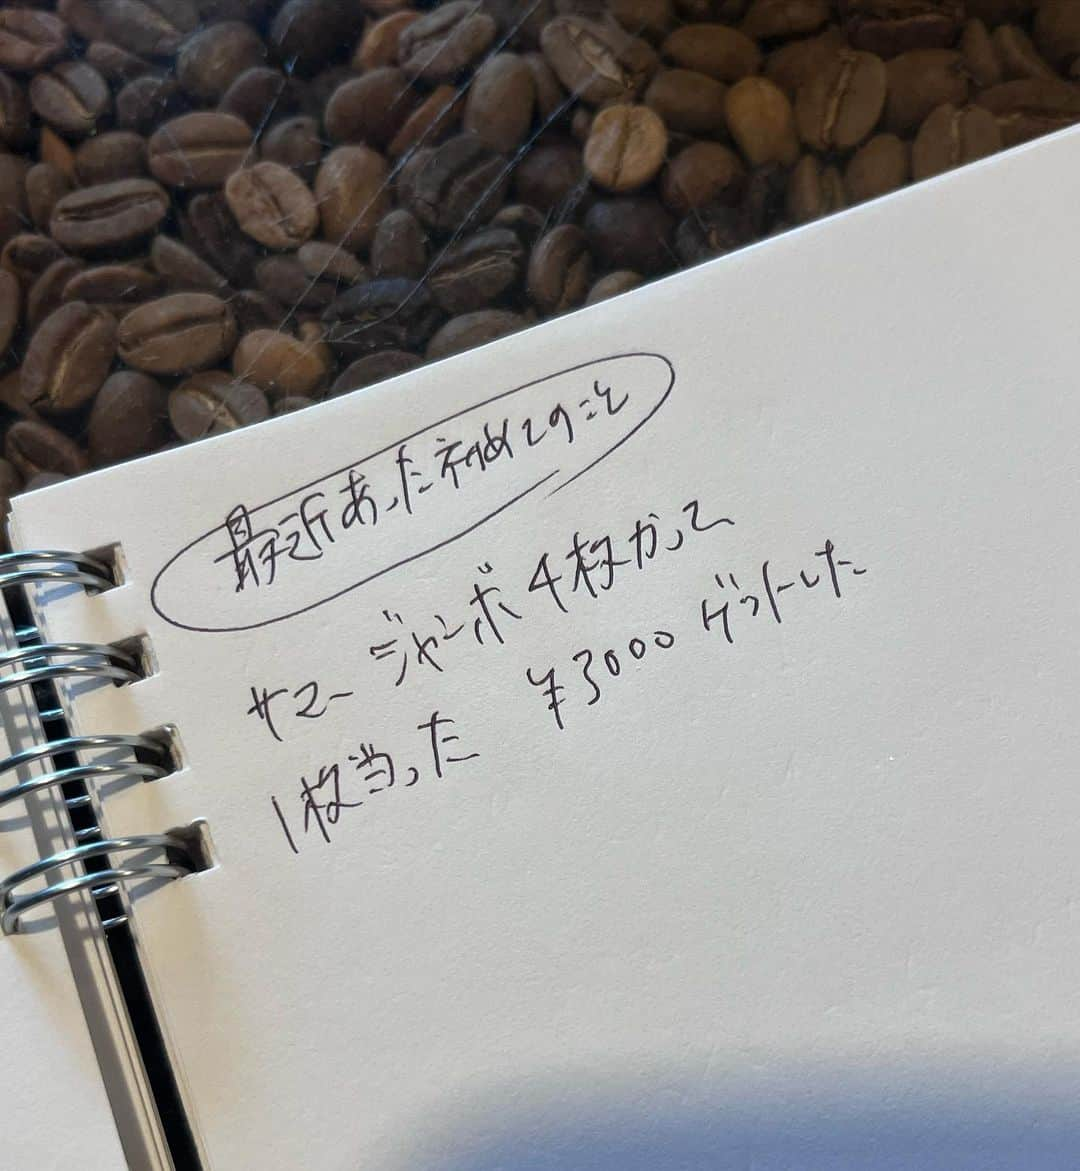 最近あった初めてのこと
サマージャンボ4枚かって
1枚当った ¥3000 ゲットした